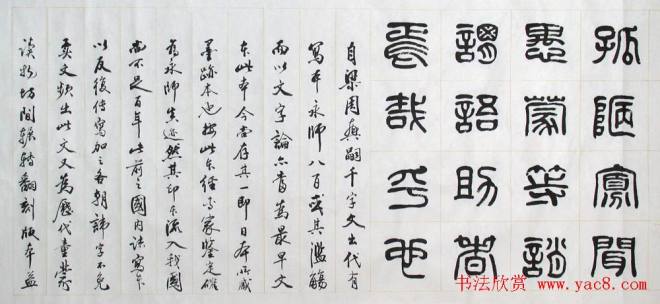 孤陋寡聞
愚蒙等誚
謂語助者
焉哉乎也
自梁周興嗣千字文出代有
寫本永師八百或其濫觴
而以文字論亦當為最早文
本此本今尚存其一即日本所藏
墨跡本也按此本經方家鑒定確
為永師真迹然其印本流入我國
尚不足百年此前之國内法寫本
以反復傳寫加之各朝諱字不免
異文頻出此文又為歷代童蒙
讀物坊間輾轉翻刻版本益
书法欣赏 www.yac8.com